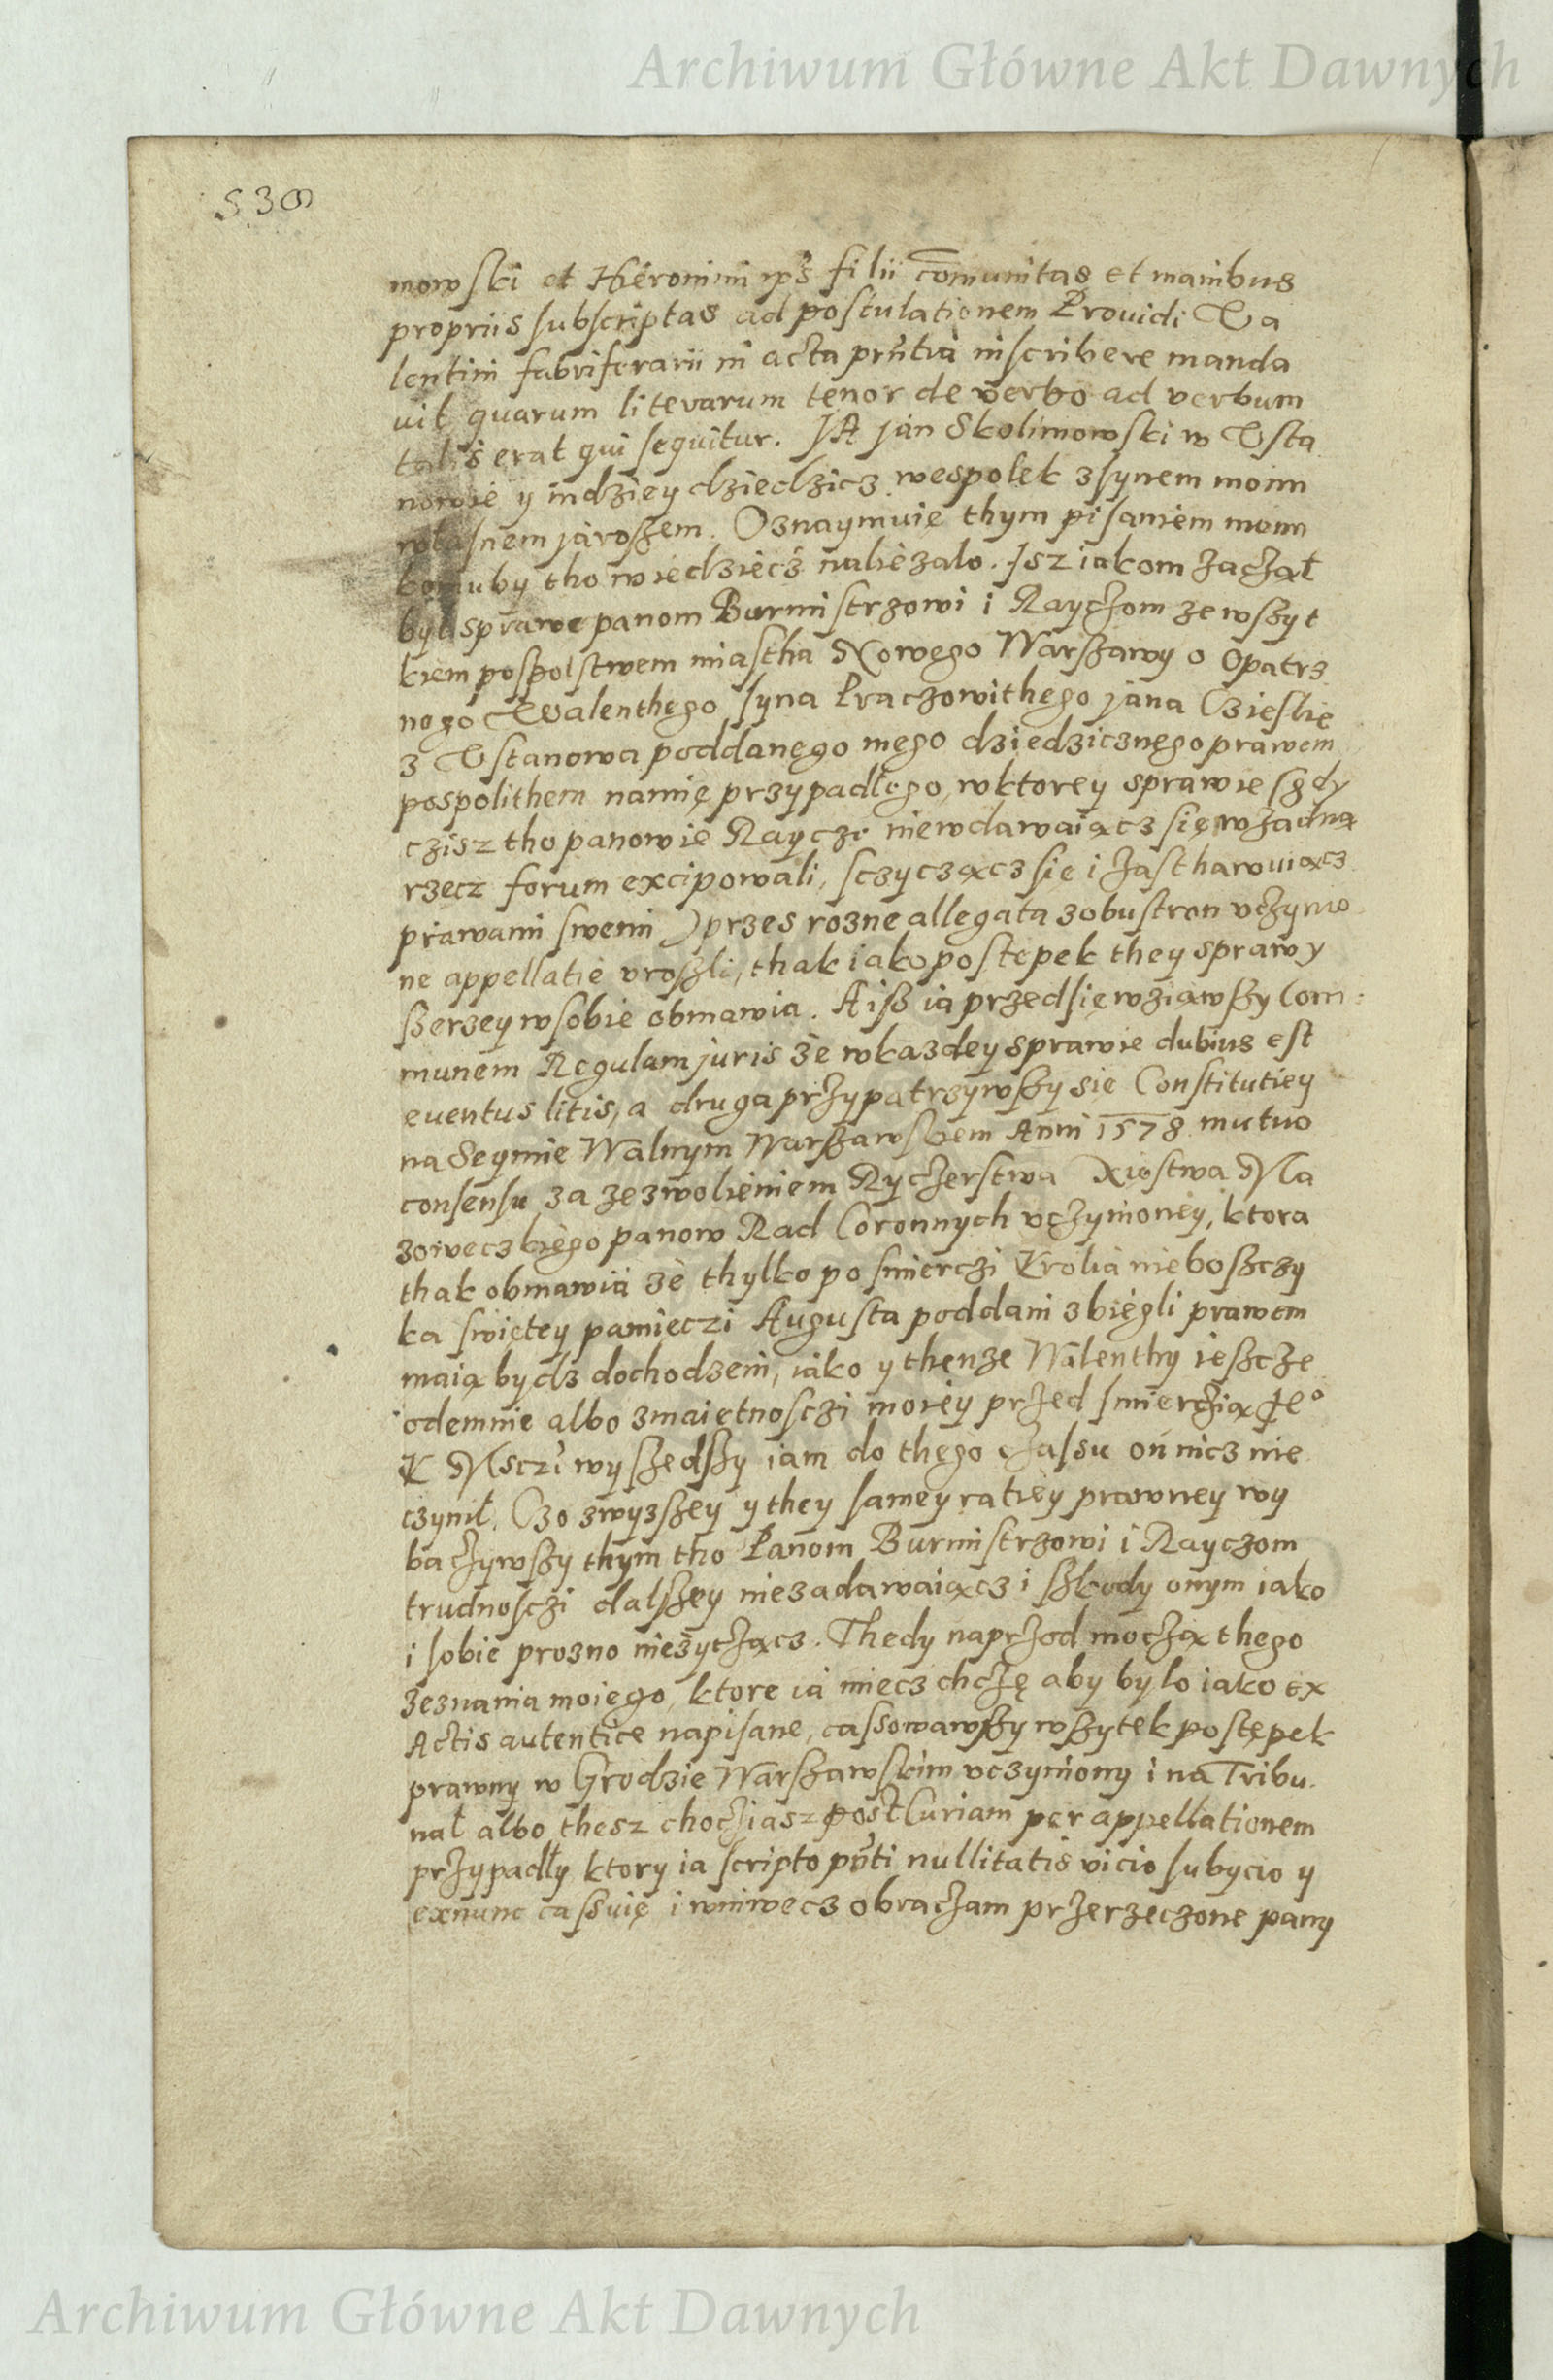 Archiwum Główne Akt Dawnych
530
mowski et Hieronimi ips filii comunitas et manibus
propriis subscriptas ad postulationem Prouidi Va
lentini fabriferarii in acta pn̄tia inscribere manda
uit quarum literarum tenor de verbo ad verbum
talis erat qui sequitur. JA jan Skolimowski w Vsta
nowie y indziey dziedzicz wespolek z synem moim
własnem jaroszem. Oznaymuię thym pisaniem moim
komuby tho wiedziecz należalo. Jsz iakom zaczął
był sprawe panom Burmistrzowi i Rayczom ze wszyt
kiem pospolstwem miastha Nowego Warszawy o Opatrz
nego Walenthego syna Praczowithego jana Czieslie
z Vstanowa poddanego mego dziedzicznego prawem
pospolithem namię przypadłego, wktorey sprawie gdy
czisz tho panowie Raycze niewdawaiącz się wżadną
rzecz forum excipowali, sczyczącz się i zasthawuiącz
prawami swemi przes rozne allegata zobustron vczynio
ne appellatie vroszli, thak iako postepek they sprawy
szerzey wsobie obmawia. A isz ia przedsięwziawszy Com:
munem Regulam juris że wkazdey sprawie dubius est
euentus litis, a druga przypatrzywszy sie Constitutiey
na Seymie Walnym Warszawskiem Anni 1578 mutuo
consensu za zezwolieniem Ryczerstwa Xięstwa Ma
zoweczkiego panow Rad Coronnych vczynioney, ktora
thak obmawia że thylko po smierczi Krolia nieboszczy
ka swiętey pamięczi Augusta poddani zbiegli prawem
maią bydz dochodzeni, iako y thenze Walenthy ieszcze
odemnie albo zmaiętnosczi moiey przed smierczią Je°
K Msczi wyszedszy iam do thego czassu oń nicz nie
czynił. Czo zwyzszey y they samey ratiey prawney wy
baczywszy thym tho Panom Burmistrzowi i Rayczom
trudnosczi dalszey niezadawaiącz i szkody onym iako
i sobie prozno nieżyczącz. Thedy naprzod moczą thego
zeznania moiego, ktore ia miecz chczę aby bylo iako ex
Actis autentice napisane, cassowawszy wszytek postępek
prawny w Grodzie Warszawskim vczyniony i na Tribu
nał albo thesz chocziasz post Curiam per appellationem
przypadły ktory ia scripto pn̄ti nullitatis vicio subycio y
exnunc cassuię i wniwecz obraczam przerzeczone pany
Archiwum Główne Akt Dawnych